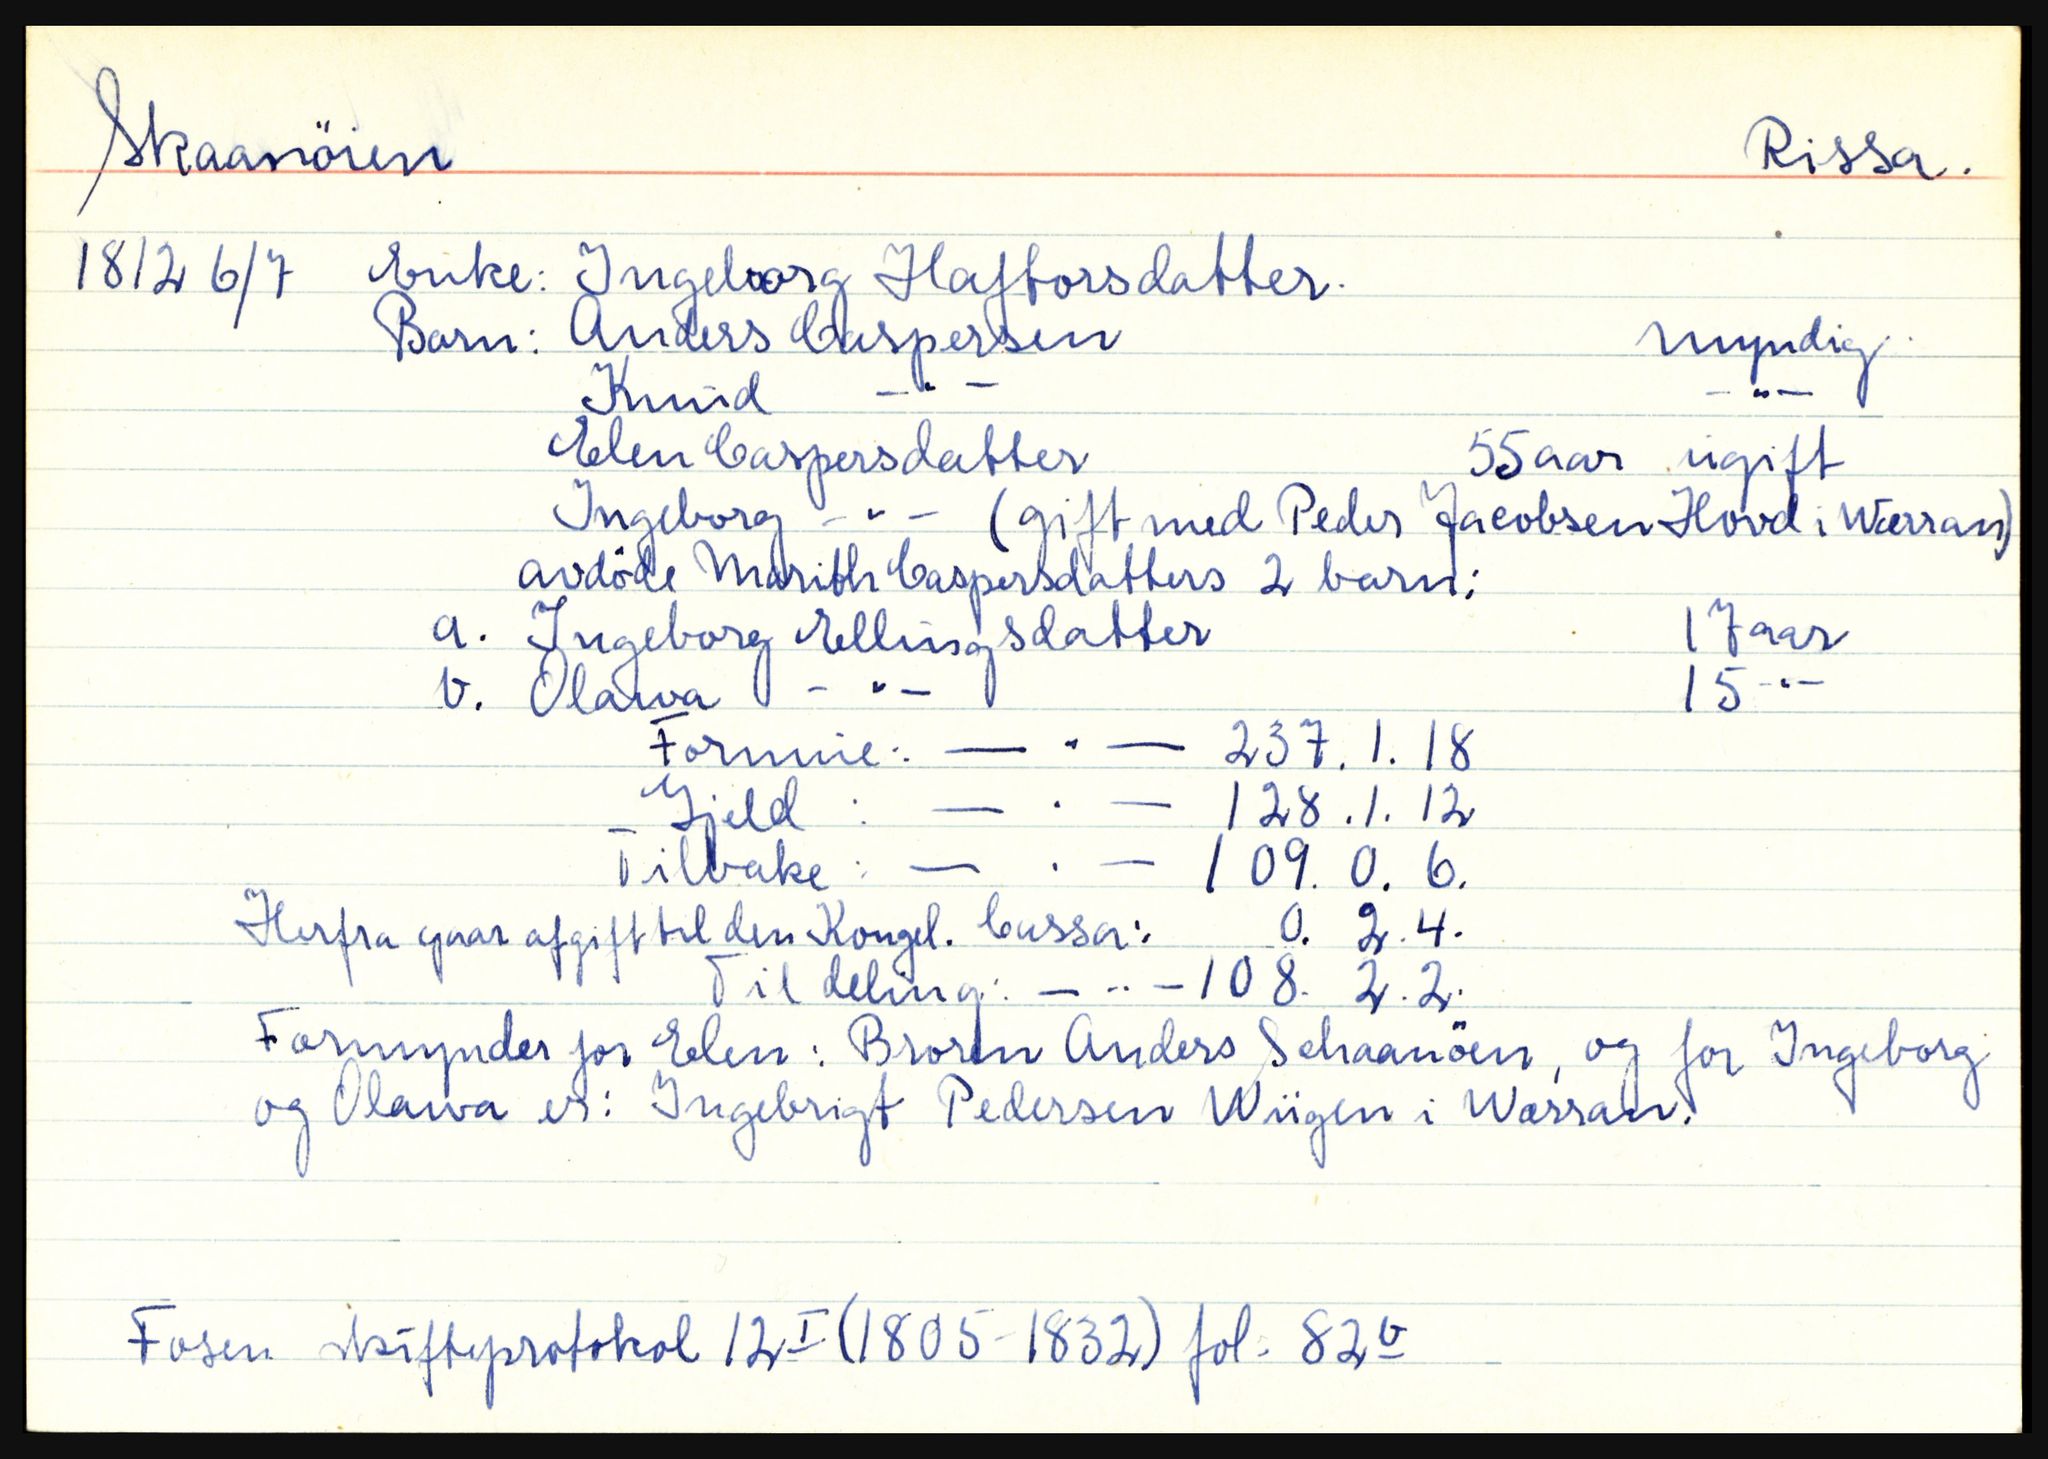 Skaanöien Rissa.
1812 6/7 Enke: Ingeborg Haftorsdatter.
Barn: Anders Caspersen myndig
Knud - " - - " -
Elen Caspersdatter 55 aar ugift
Ingeborg - " - (gift med Peder Jacobsen Hovd i Wærran)
avdöde Marith Caspersdatters 2 barn:
a. Ingeborg Ellingsdatter 17 aar
b. Olawa - " - 15 - " -
Formue: — " — 237. 1. 18
Gjeld : — . — 128. 1. 12
Tilbake : — . — 109. 0. 6.
Herfra gaar afgift til den Kongel. Cassa: 0. 2. 4.
Til deling: — .. — 108. 2. 2.
Formynder for Elen: Broren Anders Schaanöen, og for Ingeborg
og Olawa er: Ingebrigt Pedersen Wiigen i Wærran.
Fosen skifteprotokol 12 I (1805-1832) fol. 82 b